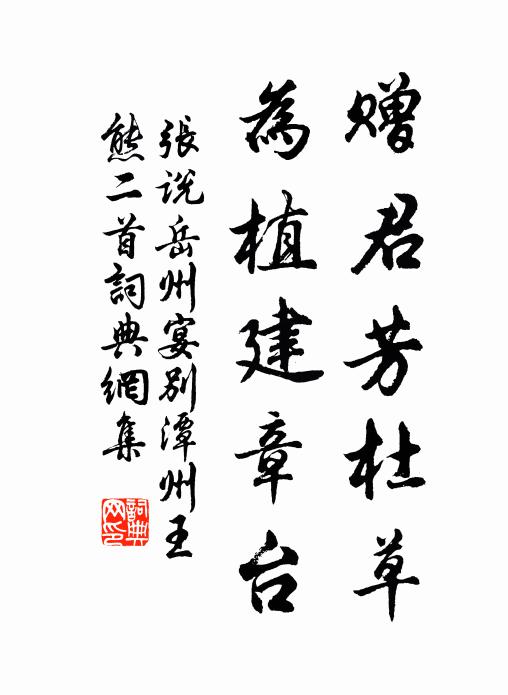 赠君芳杜草
為植建章台
張说岳州宴别潭州王
熊二首詞典網集
詞典网印